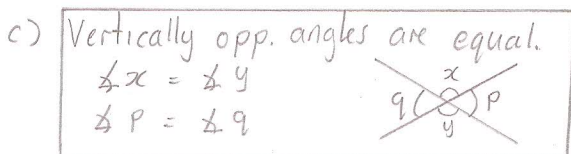 c) Vertically opp. angles are equal.
∡x = ∡y
∡p = ∡q
x
q p
y